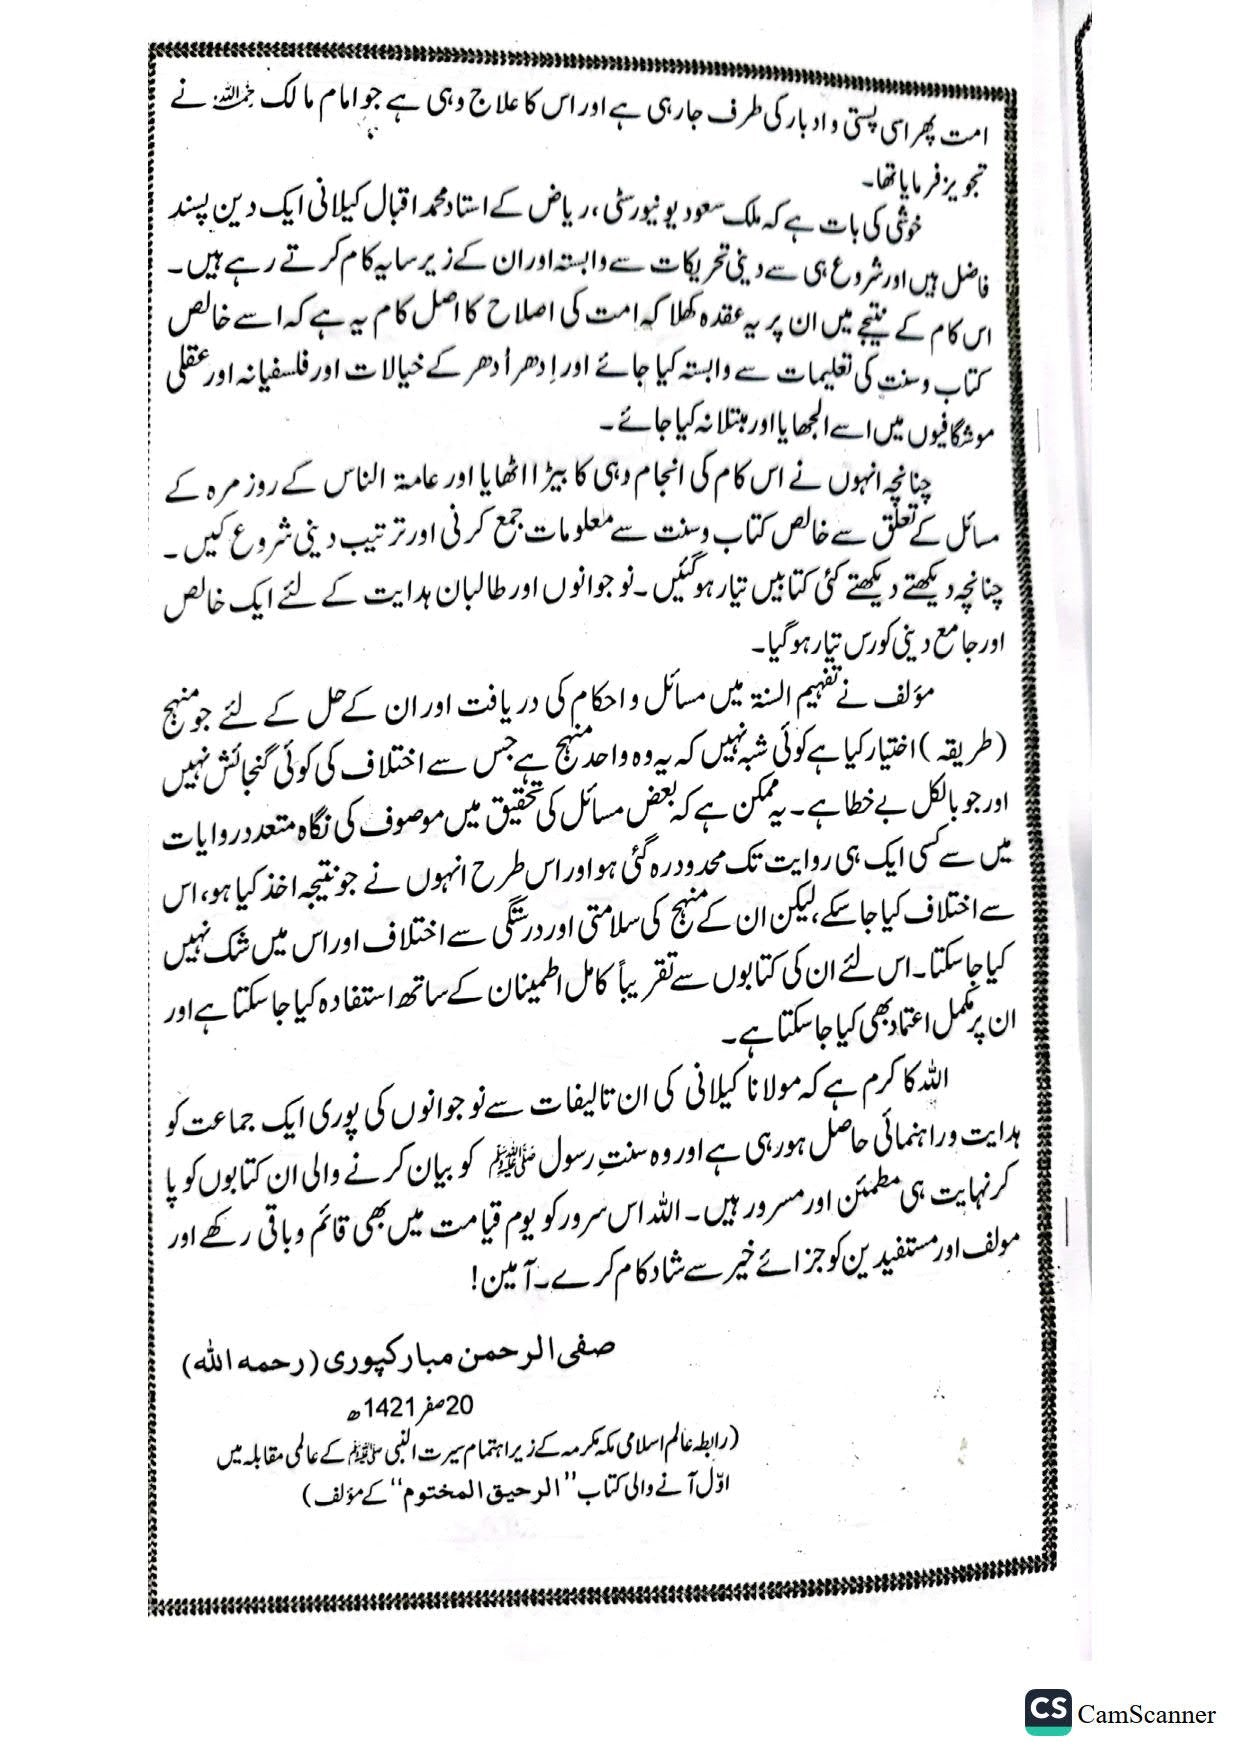 امت پھر اسی پستی و ادبار کی طرف جا رہی ہے اور اس کا علاج وہی ہے جو امام مالک رحمہ اللہ نے
تجویز فرمایا تھا۔
خوشی کی بات ہے کہ ملک سعود یونیورسٹی، ریاض کے استاد محمد اقبال کیلانی ایک دین پسند
فاضل ہیں اور شروع ہی سے دینی تحریکات سے وابستہ اور ان کے زیر سایہ کام کرتے رہے ہیں۔
اس کام کے نتیجے میں ان پر یہ عقدہ کھلا کہ امت کی اصلاح کا اصل کام یہ ہے کہ اسے خالص
کتاب و سنت کی تعلیمات سے وابستہ کیا جائے اور اِدھر اُدھر کے خیالات اور فلسفیانہ اور عقلی
موشگافیوں میں اسے الجھایا اور مبتلا نہ کیا جائے۔
چنانچہ انہوں نے اس کام کی انجام دہی کا بیڑا اٹھایا اور عامۃ الناس کے روز مرہ کے
مسائل کے تعلق سے خالص کتاب و سنت سے معلومات جمع کرنی اور ترتیب دینی شروع کیں۔
چنانچہ دیکھتے دیکھتے کئی کتابیں تیار ہوگئیں۔ نوجوانوں اور طالبان ہدایت کے لئے ایک خالص
اور جامع دینی کورس تیار ہوگیا۔
مؤلف نے تفہیم السنۃ میں مسائل و احکام کی دریافت اور ان کے حل کے لئے جو منہج
(طریقہ) اختیار کیا ہے کوئی شبہ نہیں کہ یہ وہ واحد منہج ہے جس سے اختلاف کی کوئی گنجائش نہیں
اور جو بالکل بے خطا ہے۔ یہ ممکن ہے کہ بعض مسائل کی تحقیق میں موصوف کی نگاہ متعدد روایات
میں سے کسی ایک ہی روایت تک محدود رہ گئی ہو اور اس طرح انہوں نے جو نتیجہ اخذ کیا ہو، اس
سے اختلاف کیا جا سکے، لیکن ان کے منہج کی سلامتی اور درستگی سے اختلاف اور اس میں شک نہیں
کیا جا سکتا۔ اس لئے ان کی کتابوں سے تقریباً کامل اطمینان کے ساتھ استفادہ کیا جا سکتا ہے اور
ان پر مکمل اعتماد بھی کیا جا سکتا ہے۔
اللہ کا کرم ہے کہ مولانا کیلانی کی ان تالیفات سے نوجوانوں کی پوری ایک جماعت کو
ہدایت و راہنمائی حاصل ہو رہی ہے اور وہ سنتِ رسول ﷺ کو بیان کرنے والی ان کتابوں کو پا
کر نہایت ہی مطمئن اور مسرور ہیں۔ اللہ اس سرور کو یوم قیامت میں بھی قائم و باقی رکھے اور
مولف اور مستفیدین کو جزائے خیر سے شاد کام کرے۔ آمین!
صفی الرحمن مبارکپوری (رحمہ اللہ)
20 صفر 1421ھ
(رابطہ عالم اسلامی مکہ مکرمہ کے زیر اہتمام سیرت النبی ﷺ کے عالمی مقابلہ میں
اوّل آنے والی کتاب ”الرحیق المختوم“ کے مؤلف)
CS CamScanner